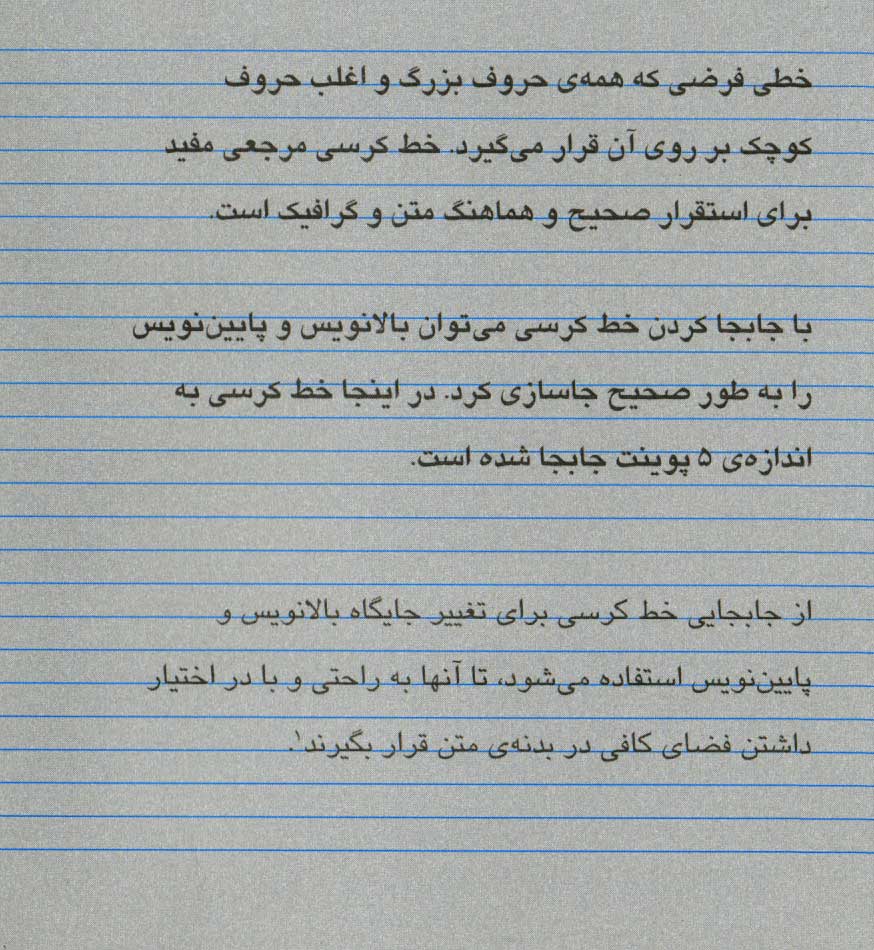 خطی فرضی که همه‌ی حروف بزرگ و اغلب حروف
کوچک بر روی آن قرار می‌گیرد. خط کرسی مرجعی مفید
برای استقرار صحیح و هماهنگ متن و گرافیک است.
با جابجا کردن خط کرسی می‌توان بالانویس و پایین‌نویس
را به طور صحیح جاسازی کرد. در اینجا خط کرسی به
اندازه‌ی ۵ پوینت جابجا شده است.
از جابجایی خط کرسی برای تغییر جایگاه بالانویس و
پایین‌نویس استفاده می‌شود، تا آنها به راحتی و با در اختیار
داشتن فضای کافی در بدنه‌ی متن قرار بگیرند۱.